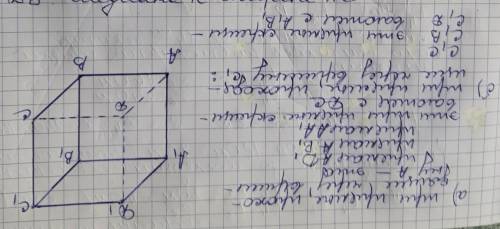 а) три прямые, прохо-
дящие через верши-
ну A — это
прямая AD₁
прямая AB₁
прямая AA₁
эти три прямые скрещи-
ваются с DC
б) три прямые, проходя-
щие через вершину C₁:
C₁C
C₁B эти прямые скрещи-
C₁D ваются с A₁B₁
B A
C D
B₁ A₁
C₁ D₁